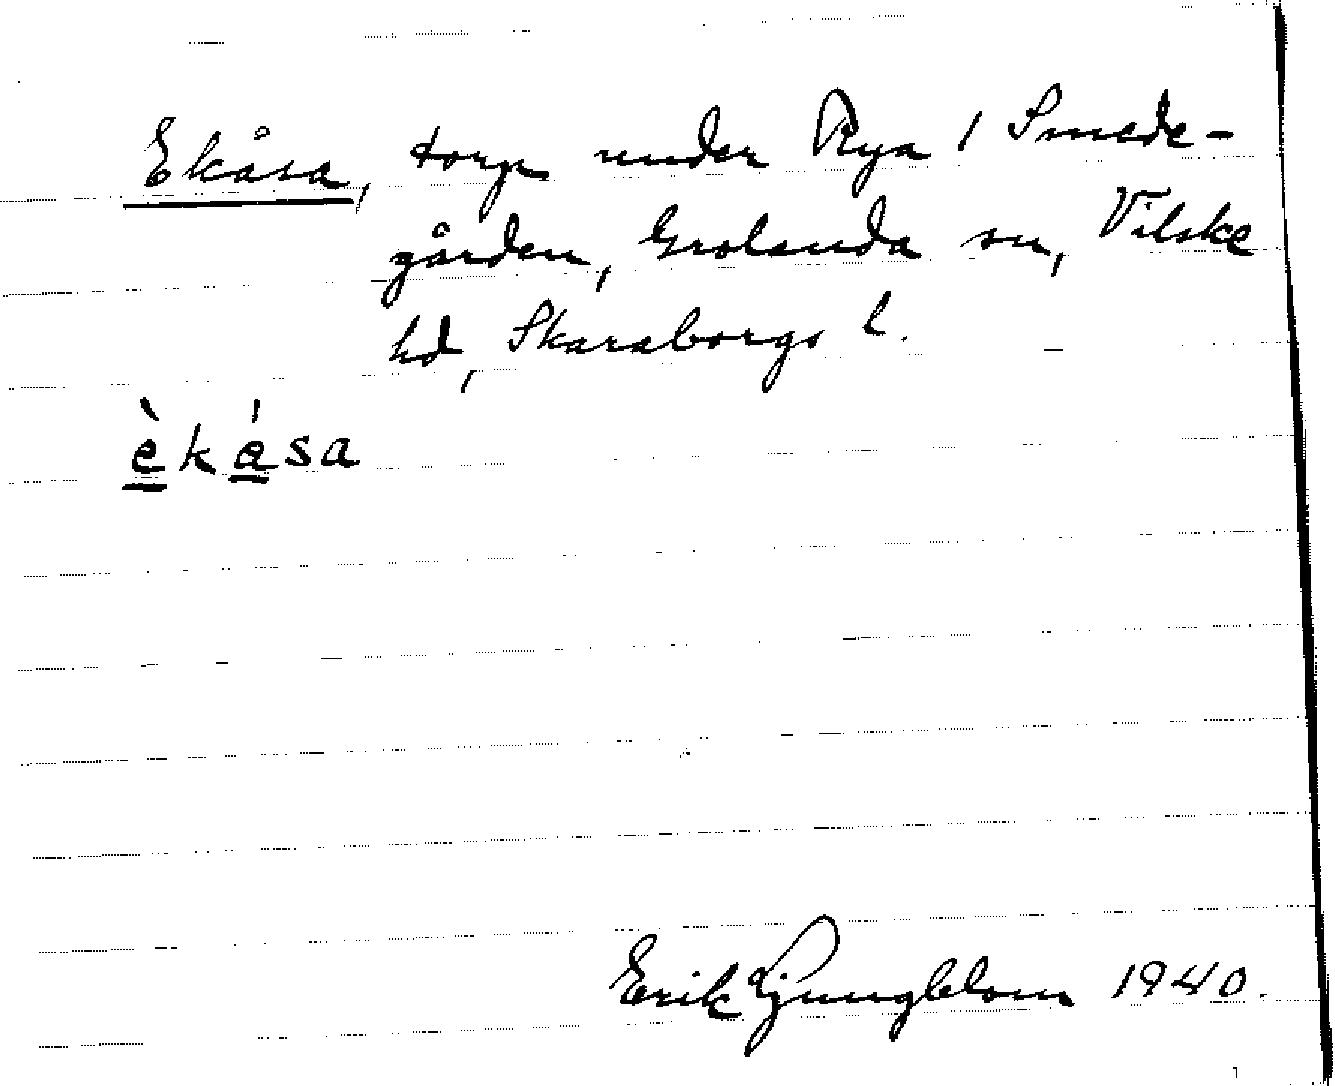 Ekåsa, torp under Rya 1 Smede-
gården, Grolanda sn, Vilske
hd, Skaraborgs l.
èkása
Erik Ljungblom 1940.